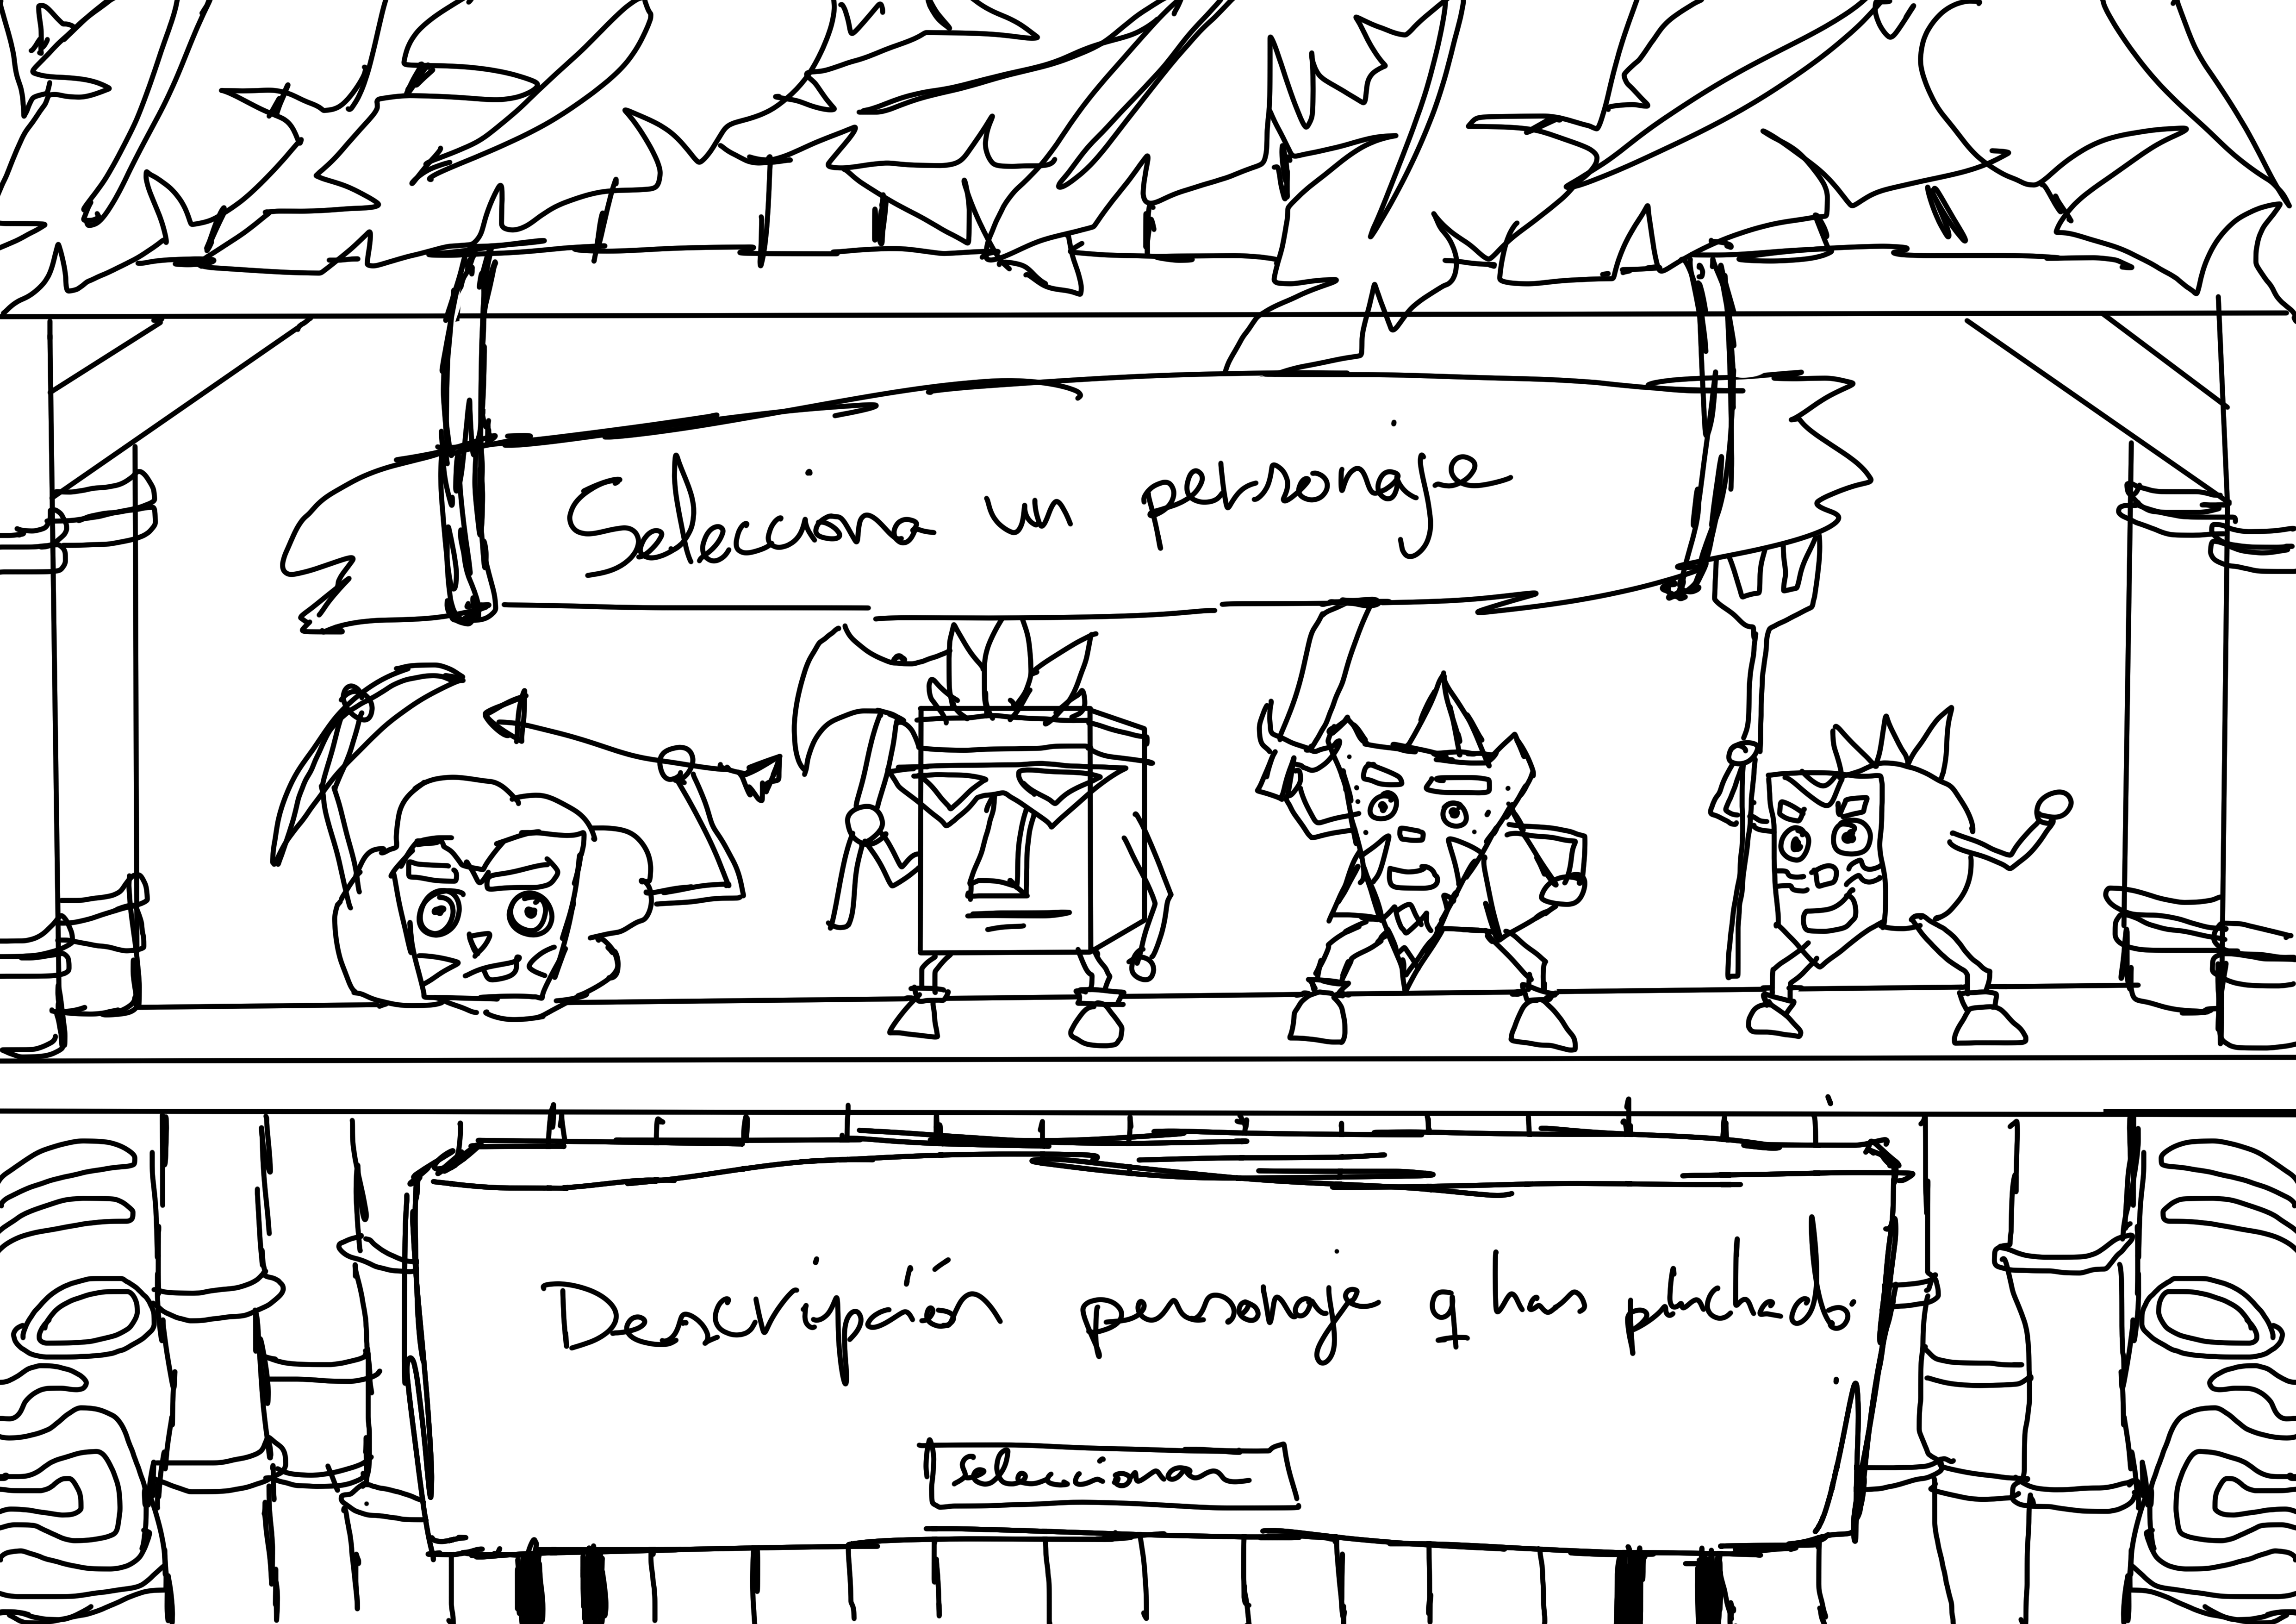 Selecciona un personaje
Descripción personaje q han pinchado
selecciona